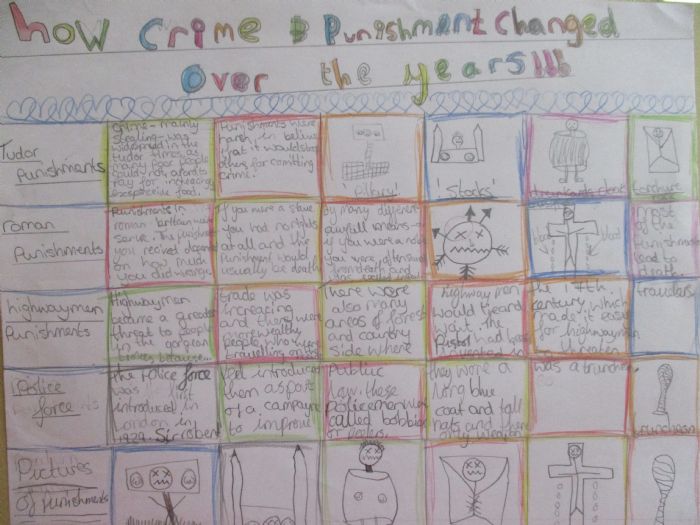 How Crime & Punishment Changed
Over the years!!!
Tudor
Punishments
Crime - mainly
stealing - was
widespread in the
tudor times as
many poor people
could not afford to
pay for
expensive food.
Punishments were
harsh, in believe
that it would stop
others for comitting
crime.
'Pillary'
'Stocks'
drunkards cloak
torchure
roman
Punishments
Punishments in
roman brittan were
The punishment
you recived depended
on how much
you did wrong.
If you were a slave
you had no rights
at all and the
punishment would
usually be death
by many different
painfull means -
if you were a noble
you were often
blood
blood
most
of the
Punishments
lead to
death.
highwaymen
Punishments
Highwaymen
became a greater
threat to people
in the gorgean
times because...
trade was
increasing
and there were
more wealthy
people, who were
travelling across
There were
also many
areas of forest
and country
side where
highway men
would
wait. The
Pistol had been
invented in
the 17th
century which
made it easier
for highwaymen
to
travellers
Police
force
the Police force
was first
introduced in
London, in
1929. Sir robert
Peel introduced
them as part
of a campayne
to improve
public
law. these
policemen were
called bobbies
or Pealers.
they wore a
long blue
coat and tall
hats and there
only weapon
was a truncheon.
truncheon
Pictures
of punishments